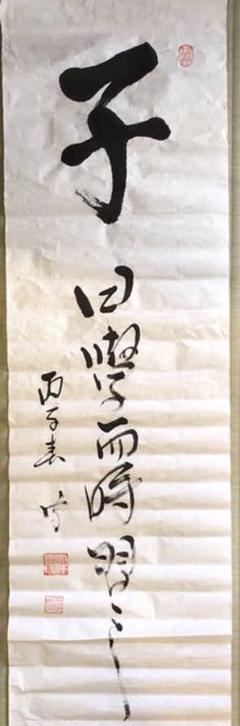 子曰學而時習之
丙子春